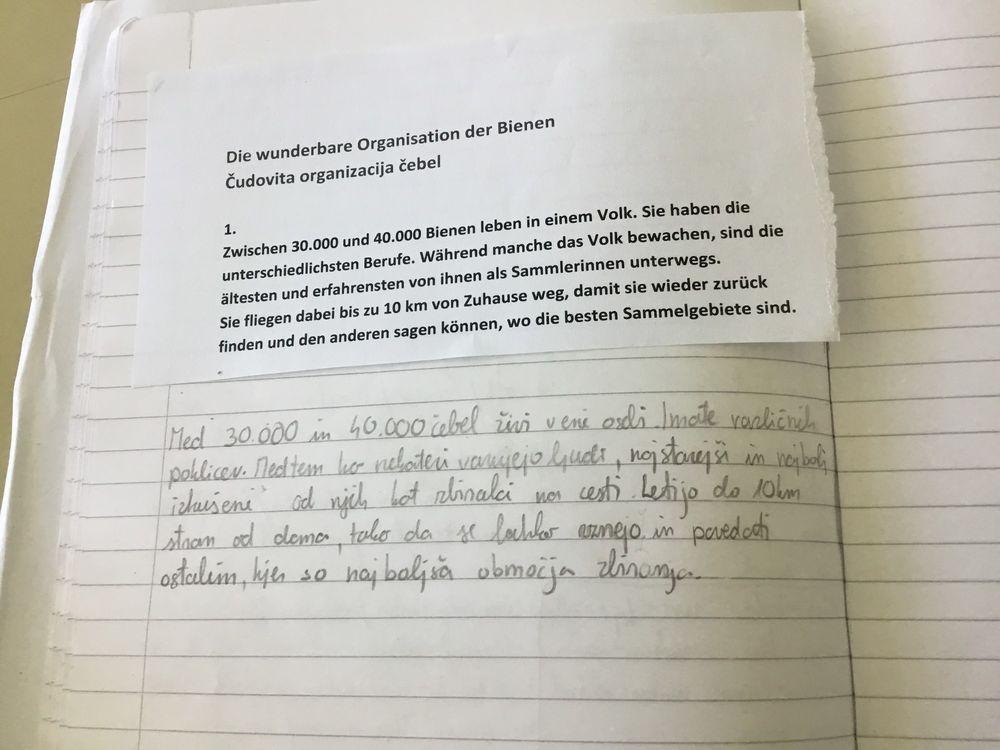 Die wunderbare Organisation der Bienen
Čudovita organizacija čebel
1.
Zwischen 30.000 und 40.000 Bienen leben in einem Volk. Sie haben die
unterschiedlichsten Berufe. Während manche das Volk bewachen, sind die
ältesten und erfahrensten von ihnen als Sammlerinnen unterwegs.
Sie fliegen dabei bis zu 10 km von Zuhause weg, damit sie wieder zurück
finden und den anderen sagen können, wo die besten Sammelgebiete sind.
Med 30.000 in 40.000 čebel živi v eni osdi. Imate različnih
poklicev. Medtem ko nekateri varujejo ljudi, najstarejši in najbolj
izkušeni od njih kot zbiralci na cesti. Letijo do 10km
stran od doma, tako da se lahko vrnejo in povedati
ostalim, kjer so najboljša območja zbiranja.